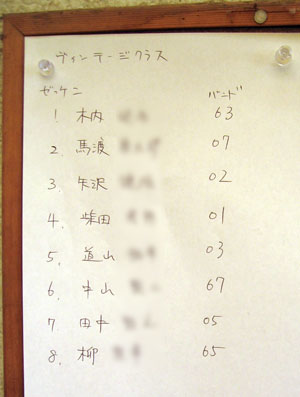 ヴィンテージクラス
ゼッケン バンド
1. 木内 63
2. 馬渡 07
3. 矢沢 02
4. 柴田 01
5. 道山 03
6. 中山 67
7. 田中 05
8. 柳 65